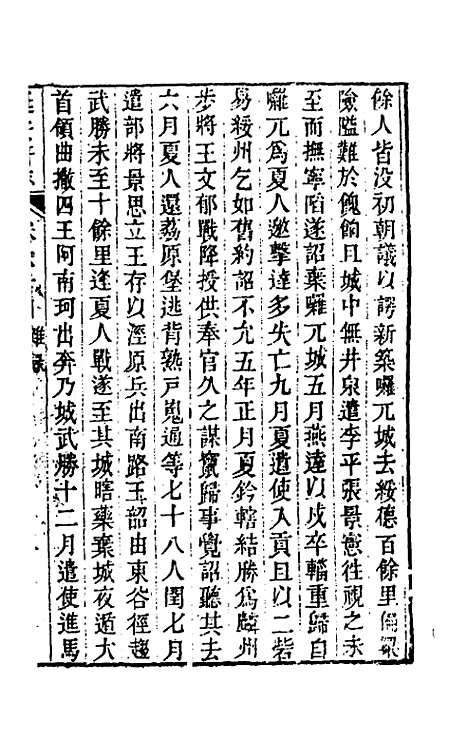 餘人皆没初朝議以諤新築囉兀城去綏德百餘里偏梁
險隘難於餽餉且城中無井泉遣李平張景憲往視之未
至而撫寧陷遂詔棄囉兀城五月燕達以戍卒輜重歸自
囉兀爲夏人邀擊達多失亡九月夏遣使入貢且以二砦
易綏州乞如舊約詔不允五年正月夏鈐轄結勝爲麟州
步將王文郁戰降授供奉官久之謀竄歸事覺詔聽其去
六月夏人還荔原堡逃背熟戸嵬逋等七十八人閏七月
遣部將景思立王存以涇原兵出南路王韶由東谷徑趨
武勝未至十餘里逢夏人戰遂至其城瞎藥棄城夜遁大
首領曲撒四王阿南珂出奔乃城武勝十二月遣使進馬
雜錄